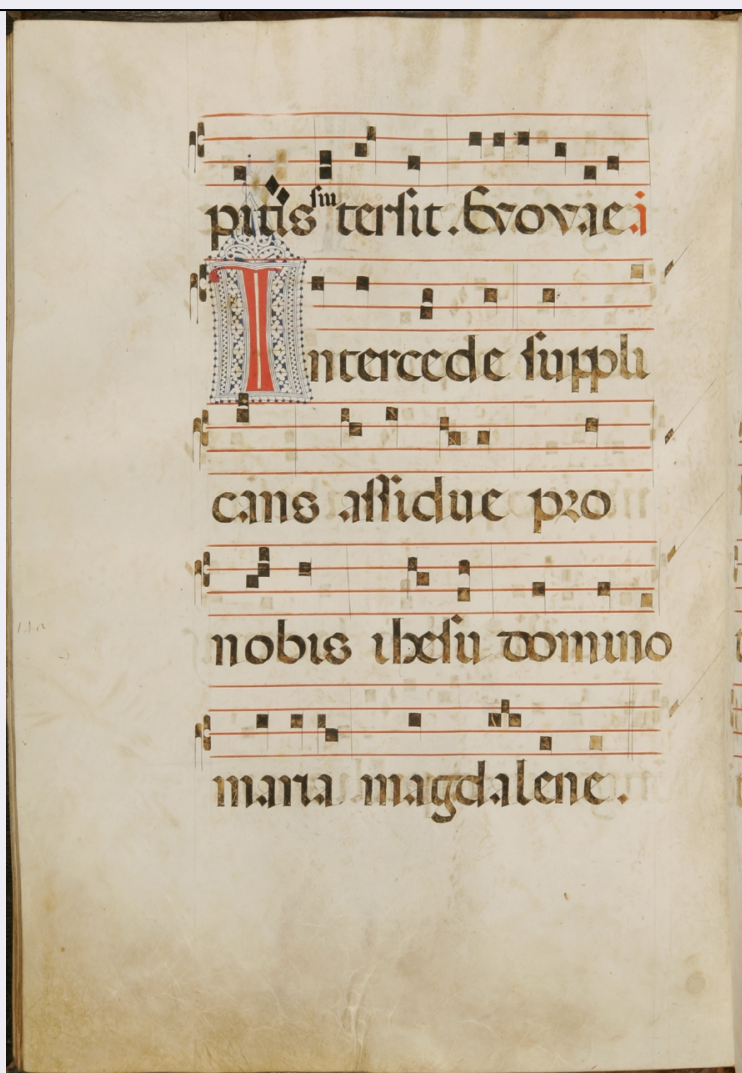 pitis sui tersit. Evovae a
Intercede suppli
cans assidue pro
nobis ihesu domino
maria magdalene.